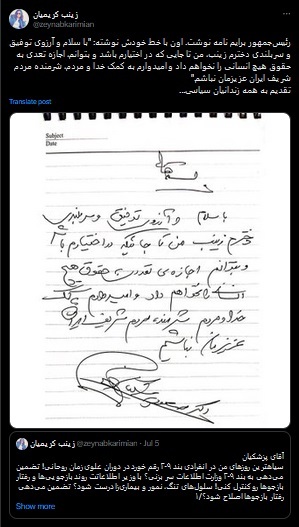 زینب کریمیان
@zeynabkarimian
رئیس‌جمهور برایم نامه نوشت. اون با خط خودش نوشته: "با سلام و آرزوی توفیق
و سربلندی دخترم زینب، من تا جایی که در اختیارم باشد و بتوانم، اجازه تعدی به
حقوق هیچ انسانی را نخواهم داد و امیدوارم به کمک خدا و مردم، شرمنده مردم
شریف ایران عزیزمان نباشم"
تقدیم به همه زندانیان سیاسی...
Translate post
Subject
Date
با سلام و آرزوی توفیق و سربلندی
دخترم زینب من تا جائیکه در اختیارم باشد
و بتوانم اجازه‌ی تعدی به حقوق هیچ
انسانی را نخواهم داد و امیدوارم به کمک
خدا و مردم شرمنده مردم شریف ایران
عزیزمان نباشم
زینب کریمیان @zeynabkarimian · Jul 5
آقای پزشکیان
سیاهترین روزهای من در انفرادی بند ۲۰۹ رقم خورد در دوران علوی زمان روحانی! تضمین
می‌دهی به بند ۲۰۹ وزارت اطلاعات سر بزنی؟ با وزیر اطلاعاتت روند بازجویی‌ها و رفتار
بازجوها رو کنترل کنی؟ سلول‌های تنگ، نمور و بیماری‌زا درست شود؟ تضمین می‌دهی
رفتار بازجوها اصلاح شود؟/۱
Show more